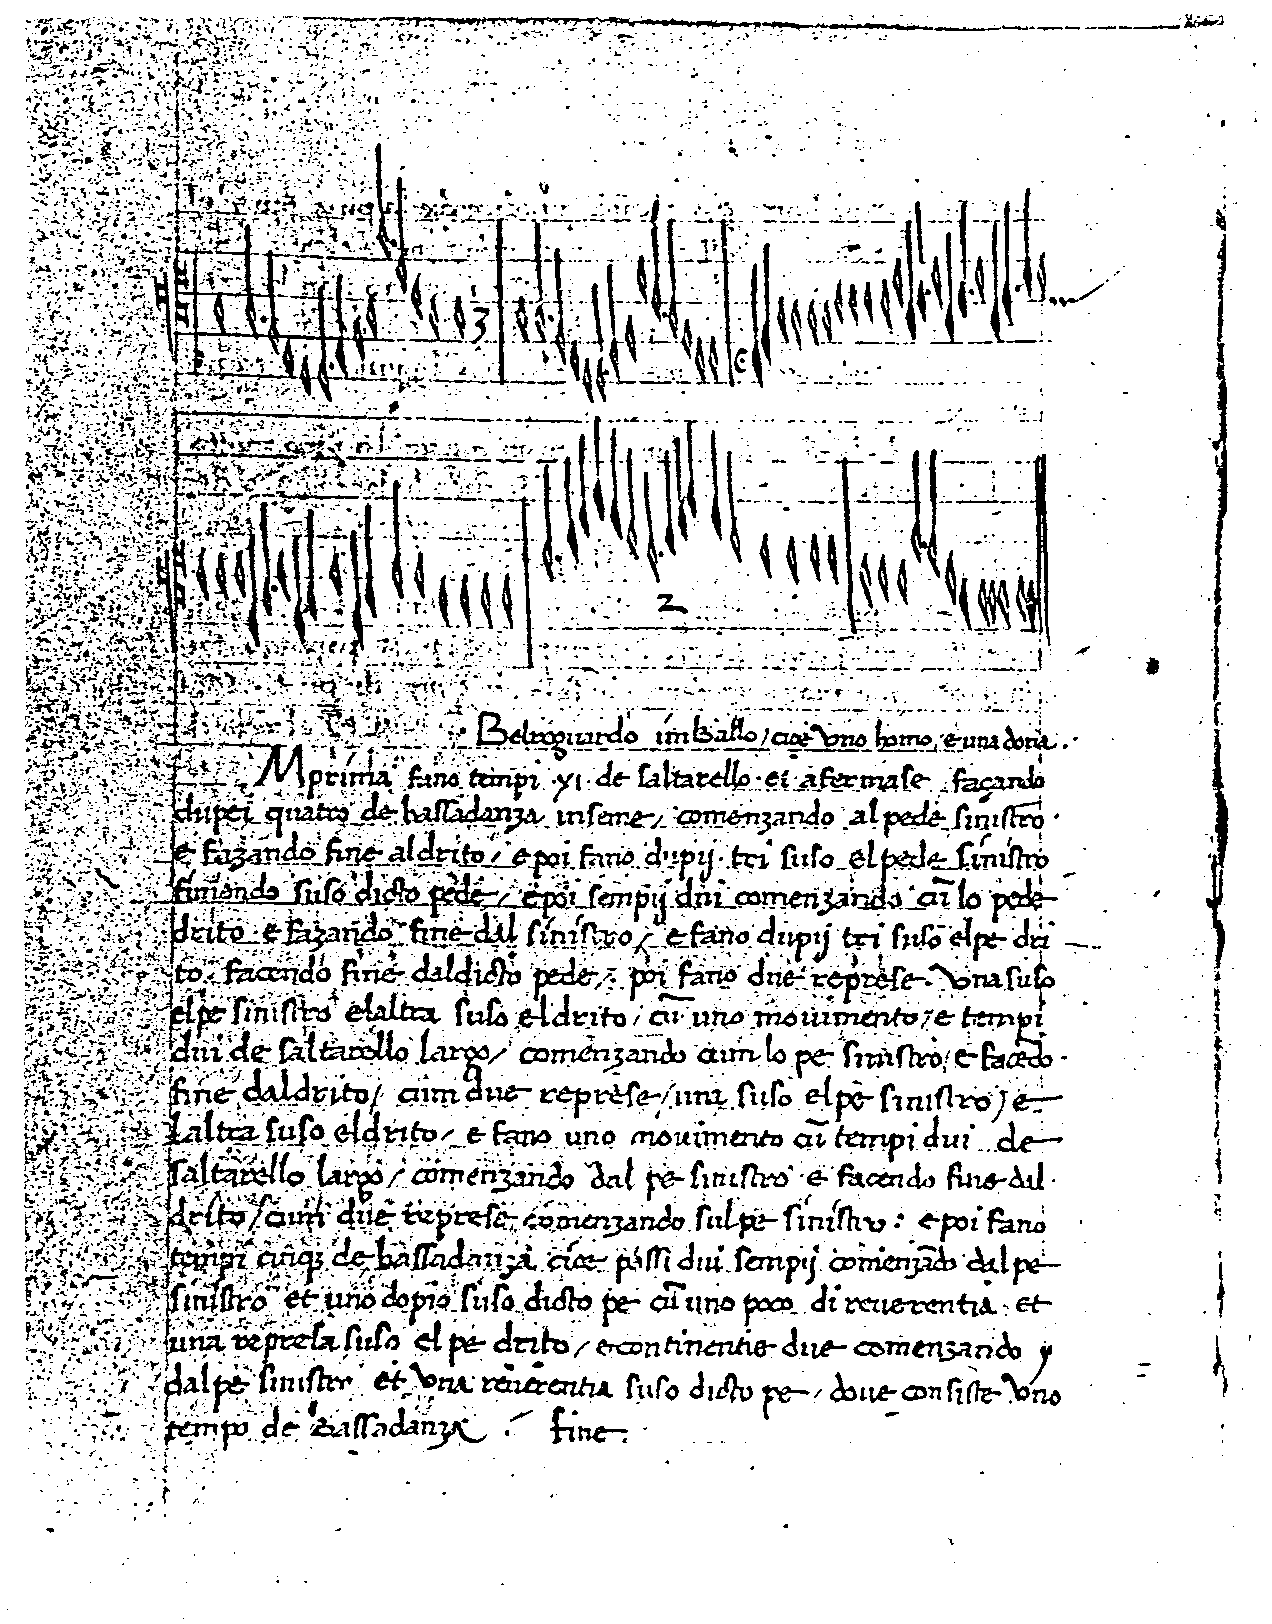 Belreguardo im ballo / cioè uno homo, e una dona.
Mprima fano tempi xi de saltarello ei afermase façando
dupci quatro de bassadanza inseme, comenzando al pede sinistro
e fazando fine al drito / e poi fano dupij tri suso el pede sinistro
finiendo suso dicto pede / e poi sempij dui comenzando cũ lo pede
drito e fazando fine dal sinistro / e fano dupij tri suso el pe dri
to facendo fine dal dicto pede / poi fano due reprèse. Una suso
el pe sinistro e laltra suso el drito / cũ uno mouimento / e tempi
dui de saltarello largo / comenzando cum lo pe sinistro / e facẽdo
fine dal drito / cum due reprèse / una suso el pè sinistro / e
laltra suso el drito / e fano uno mouimento cũ tempi dui de
saltarello largo / comenzando dal pe sinistro e facendo fine dal
drito / cum due reprèse comenzando sul pe sinistro : e poi fano
tempi cinq3 de bassadanza cioe passi dui sempij comenzãdo dal pe
sinistro et uno dopio suso dicto pe cũ uno poco di reuerentia et
una represa suso el pe drito / e continentie due comenzando
dal pe sinistr et Una reuerentia suso dicto pe / doue consiste Uno
tempo de bassadanza fine.